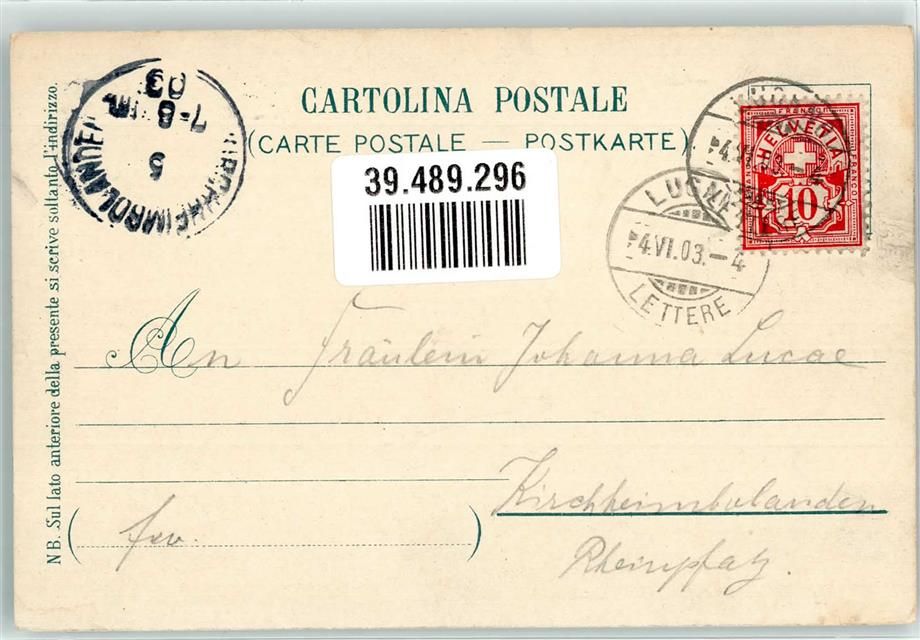 CARTOLINA POSTALE
(CARTE POSTALE — POSTKARTE)
KIRCHHEIMBOLANDEN
5
7-8
03
39.489.296
FRANCO
HELVETIA
10
LUGANO
4.VI.03.-4
LETTERE
NB. Sul lato anteriore della presente si scrive soltanto l'indirizzo.
An Fräulein Johanna Lucae
Kirchheimbolanden
(frv. )
Rheinpfalz.